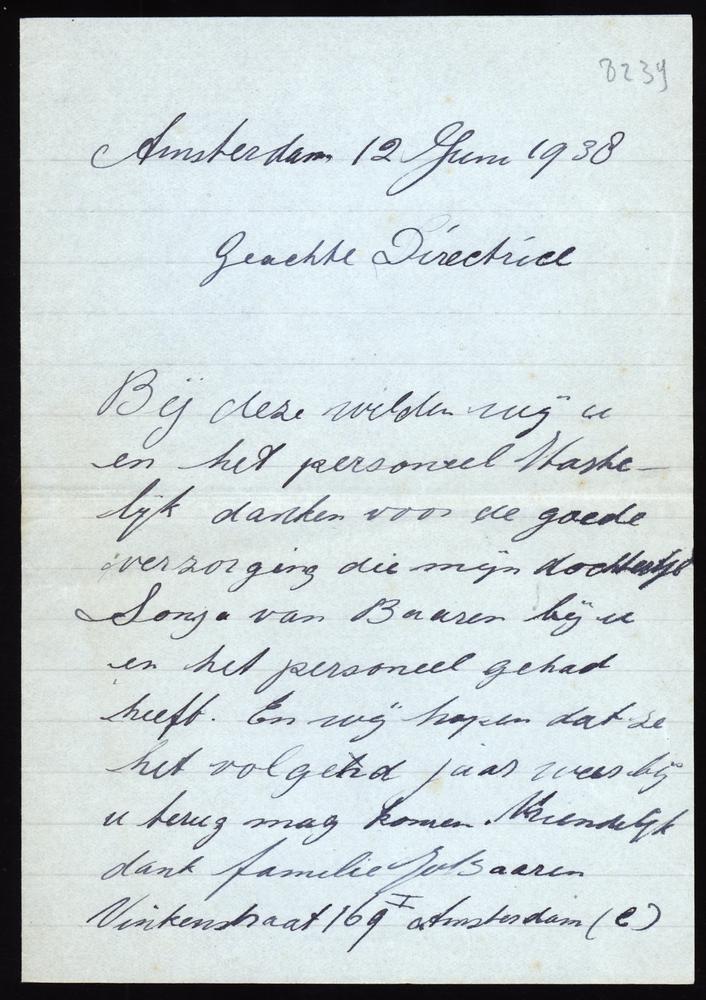 8239
Amsterdam 12 Juni 1938
Geachte Directrice
Bij deze wilden wij u
en het personeel Harte-
lijk danken voor de goede
verzorging die mijn dochtertje
Sonja van Baaren bij u
en het personeel gehad
heeft. En wij hopen dat ze
het volgend jaar weer bij
u terug mag komen. Vriendelijk
dank familie Baaren
Vinkenstraat 169 I Amsterdam (C)